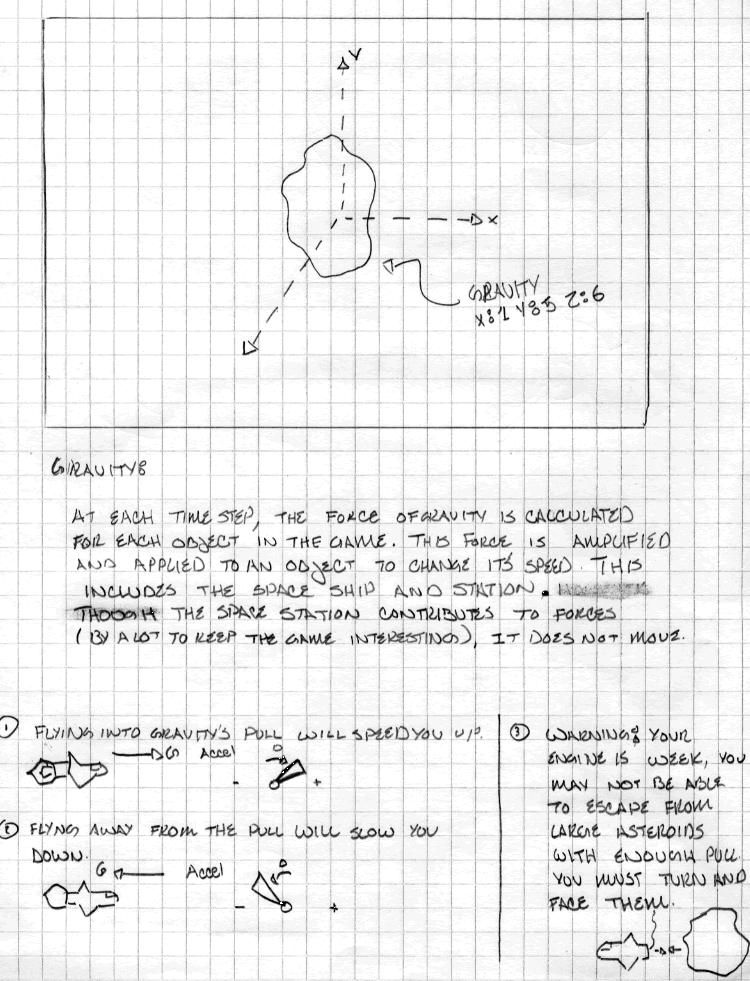 Y
X
GRAVITY
X:1 Y:5 Z:6
GRAVITY:
AT EACH TIME STEP, THE FORCE OF GRAVITY IS CALCULATED
FOR EACH OBJECT IN THE GAME. THIS FORCE IS AMPLIFIED
AND APPLIED TO AN OBJECT TO CHANGE ITS SPEED. THIS
INCLUDES THE SPACE SHIP AND STATION.
THOUGH THE SPACE STATION CONTRIBUTES TO FORCES
(BY A LOT TO KEEP THE GAME INTERESTING), IT DOES NOT MOVE.
1 FLYING INTO GRAVITY'S PULL WILL SPEED YOU UP.
G Accel 0
- +
2 FLYNG AWAY FROM THE PULL WILL SLOW YOU
DOWN.
G Accel 0
- +
3 WARNING: YOUR
ENGINE IS WEEK, YOU
MAY NOT BE ABLE
TO ESCAPE FROM
LARGE ASTEROIDS
WITH ENOUGH PULL.
YOU MUST TURN AND
FACE THEM.